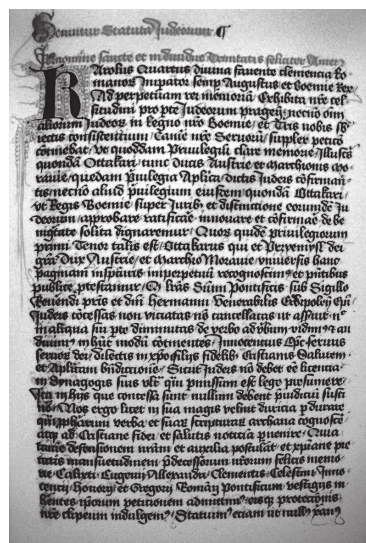 Secuntur Statuta Iudeorum
In nomine sancte et individue Trinitatis feliciter Amen
Karolus Quartus divina favente clementia Ro
manor Inpator semp Augustus et boemie Rex
Ad perpetuam rei memoria Exhibita nre cel
situdini pro pte Iudeorum pragen necno oim
aliorum Iudeor in Regno nro Boemie et Tris nobis sb
iectis consistentium
cotinebat ut quoddam Privilegiu clare memorie Illustris
quonda Ottakari tunc ducis Austrie et Marchionis mo
ravie quedam privilegia Aplica dictis Iudeis cofirman
tis necno aliud privilegium eiusdem quonda Ottakari
ut Regis Boemie super Iurib et distinctione eorunde Iu
deorum approbare ratificare innovare et cofirmare de be
nignitate solita dignaremur Quor quide privilegiorum
primi Tenor talis est Ottakarus qui et Przemysl dei
gra Dux Austrie et Marchio Moravie universis hanc
paginam inspecturis imperpetuu recognoscim et pntibus
publice ptestamur Q lras Summi Pontificis sub Sigillo
Reverendi pris et dni Hermanni Venerabilis
Iudeis cocessas non viciatas no cancellatas ut assunt
in aliqua sui pte diminutas de verbo ad verbum vidim et au
divim in hunc modum cotinentes Innocentius Epc servus
servor dei dilectis in xpo filiis fidelib Cristianis Salutem
et Aplicam bndictione Sicut Iudeis no debet ee licentia
in Synagogis suis ultra qm pmissum est lege presumere
Ita in hiis que concessa sunt nullum debent preiudiciu susti
ne Nos ergo licet in sua magis velint duricia pdurare
qm pphetarum verba et suar scripturar archana cognosce
atq ad Cristiane fidei et salutis noticia pvenire Quia
tamen defensionem nram et auxilia postulat et xpiane pie
tatis mansuetudinem pdecessorum nrorum felicis memo
rie Calixti Eugenii Allexandri Clementis Celestini Inno
centii Honorii et Gregorii Romanor Pontificum vestigiis in
herentes ipsorum peticionem admittim eisq protectionis
nre clipeum indulgem Statuim etiam ut null xan